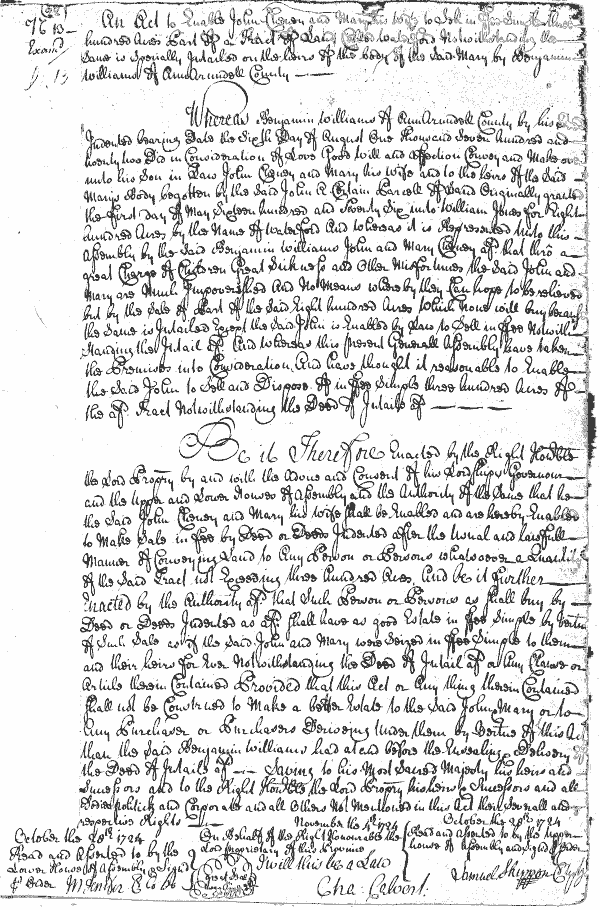 No 13
An Act to Enable John Cheney and Mary his wife to Sell in Fee Simple three
hundred Acres Part of a Tract of Land Called Waterford Notwithstanding the
Same is Specially Intailed on the heirs of the body of the Said Mary by Benjamin
Williams of Ann Arundell County
Whereas Benjamin Williams of Ann Arundell County by his
Indented bearing Date the Sixth Day of August One thousand Seven hundred and
twenty two Did in Consideration of Love Good will and affection Convey and Make over
unto his Son in Law John Cheney and Mary his wife and to the heirs of the Said
Marys Body begotten by the Said John A Certain Parcell of Land Originally granted
the first day of May Sixteen hundred and Seventy Six unto William Jones for Eight
hundred Acres by the Name of Waterford And whereas it is Represented unto this
Assembly by the Said Benjamin Williams John and Mary Cheney afd. that thro a
great Charge of Children Great Sickness and Other Misfortunes the Said John and
Mary are Much Impoverished And No Means whereby they Can hope to be relieved
but by the Sale of Part of the Said Eight hundred Acres which None will buy because
the Same is Intailed Except the Said John is Enabled by Law to Sell in ffee Notwith
Standing the Intail afd. And whereas this present Generall Assembly have taken
the Premises into Consideration And have thought it reasonable to Enable
the Said John to Sell and Dispose of in ffee Simple three hundred Acres of
the afd. Tract Notwithstanding the Deed of Intaile afd.
Be it Therefore Enacted by the Right Honble
the Lord Propry by and with the Advice and Consent of his Lordships Governour
and the Upper and Lower Houses of Assembly and the Authority of the Same that he
the Said John Cheney and Mary his wife shall be Enabled and are hereby Enabled
to Make Sale in ffee by Deed or Deeds Indented after the Usual and lawfull
Manner of Conveying Land to Any Person or Persons whatsoever a Quantity
of the Said Tract not Exceeding three hundred Acres, And be it further
Enacted by the Authority afd. that Such Person or Persons as shall buy by
Deed or Deeds Indented as afd. shall have as good Estate in ffee Simple by Vertue
of Such Sale as if the Said John and Mary were Seized in ffee Simple to them
and their heirs for Ever Notwithstanding the Deed of Intail afd. or Any Clause or
Article therein Contained Provided that this Act or Any thing therein Contained
shall not be Construed to Make a better Estate to the Said John Mary or to
Any Purchaser or Purchasers Deriveing Under them by Vertue of this Act
than the Said Benjamin Williams had at and before the Ensealing & Delivery
the Deed of Intaile afd. Saving to his Most Sacred Majesty his heirs and
Successors and to the Right Honble the Lord Propry his heirs & Successors and all
Bodies politick and Corporate and all Others Not Mentioned in this Act their Severall and
respective Rights
October the 28th 1724
Read and Assented to by the
Lower House of Assembly & Signed
p Order M Jenifer Cl Lo H
November the 4th 1724
On Behalf of the Right Honourable the
Lord Proprietary of this Province
I will this be a Law
Cha: Calvert
October the 29th 1724
Read and assented to by the Upper
house of Assembly and Signed p Order
Samuel Skippon